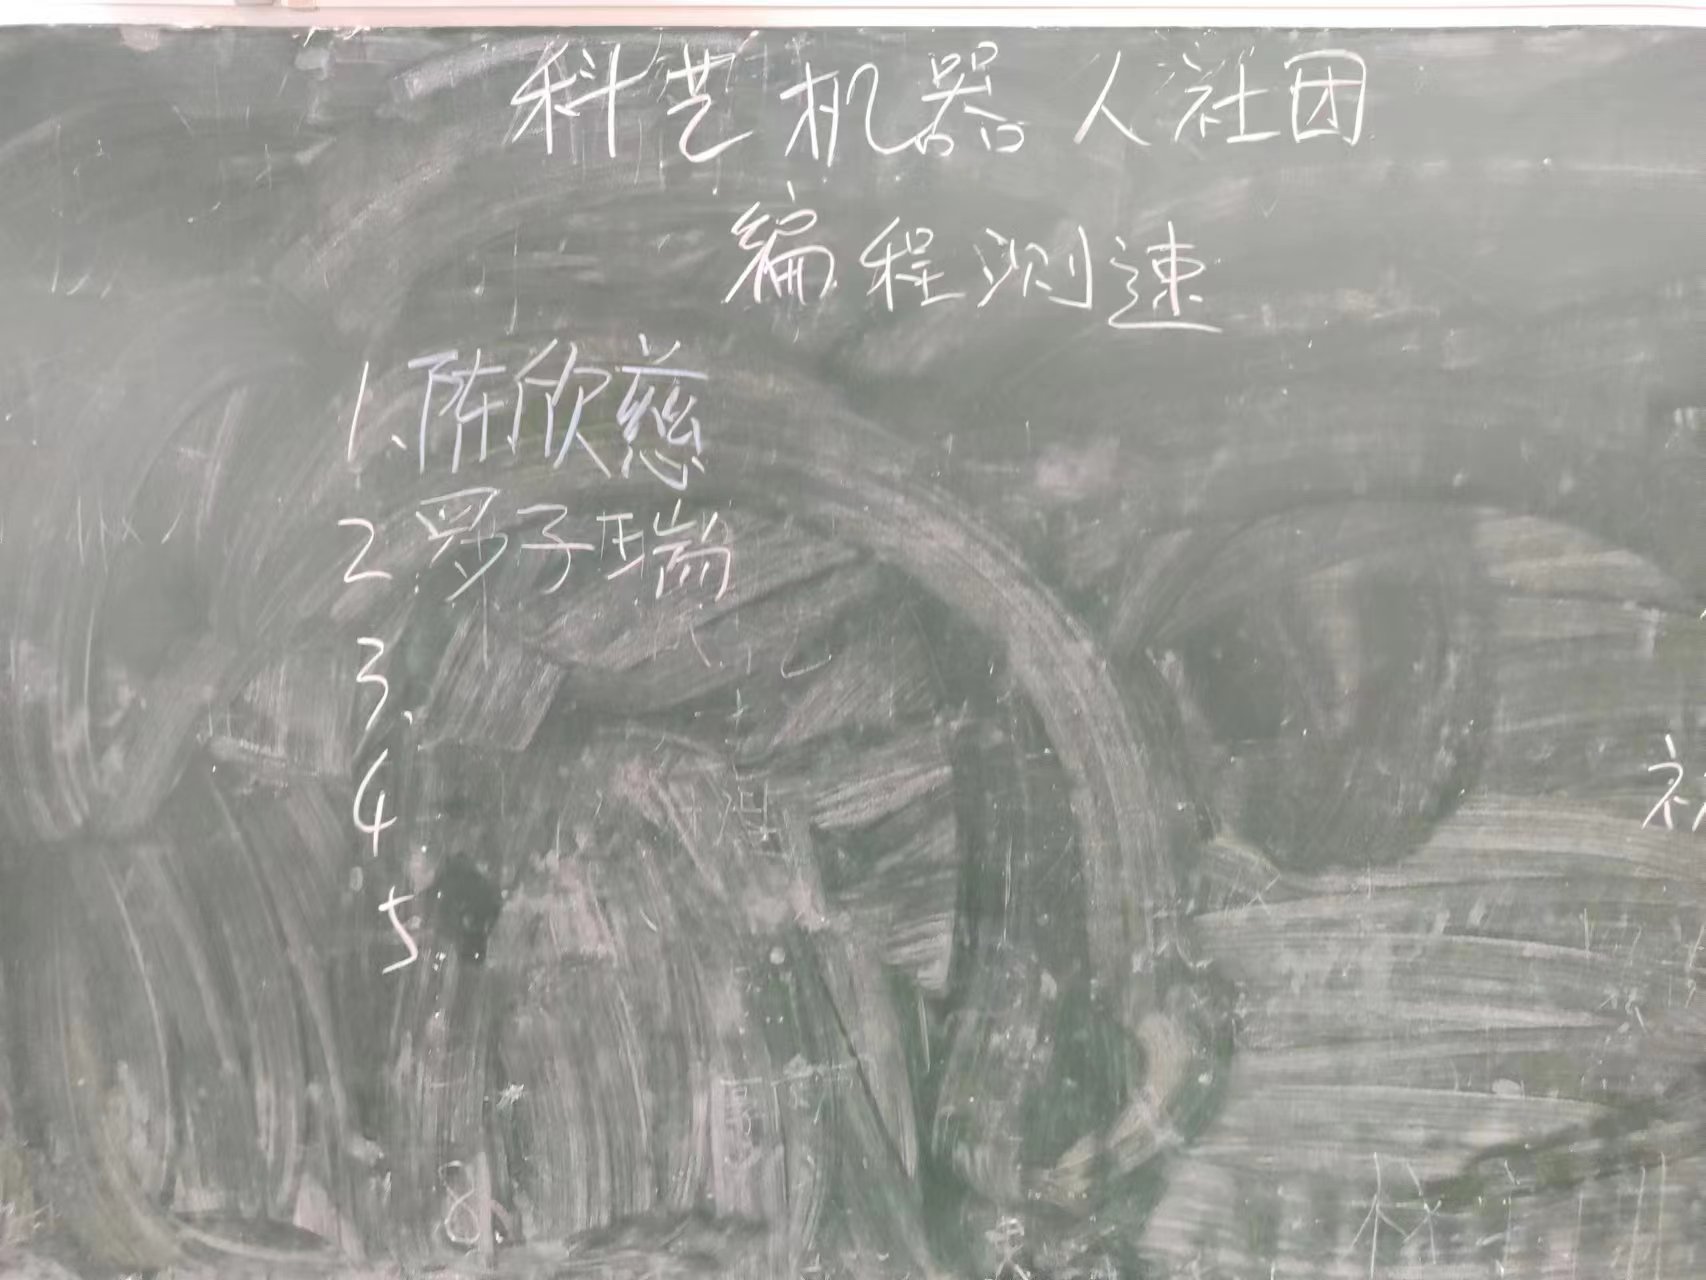 科艺机器人社团
编程测速
1.陈欣慈
2.罗子瑞
3.
4.
5.
8.